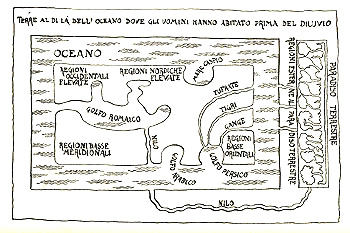 TERRE AL DI LÀ DELL'OCEANO DOVE GLI UOMINI HANNO ABITATO PRIMA DEL DILUVIO
OCEANO
REGIONI
OCCIDENTALI
ELEVATE
REGIONI NORDICHE
ELEVATE
MARE CASPIO
GOLFO ROMAICO
EUFRATE
TIGRI
GANGE
REGIONI BASSE
MERIDIONALI
NILO
GOLFO ARABICO
GOLFO PERSICO
REGIONI
BASSE
ORIENTALI
NILO
REGIONI ESTERNE AL PARADISO TERRESTRE
PARADISO TERRESTRE